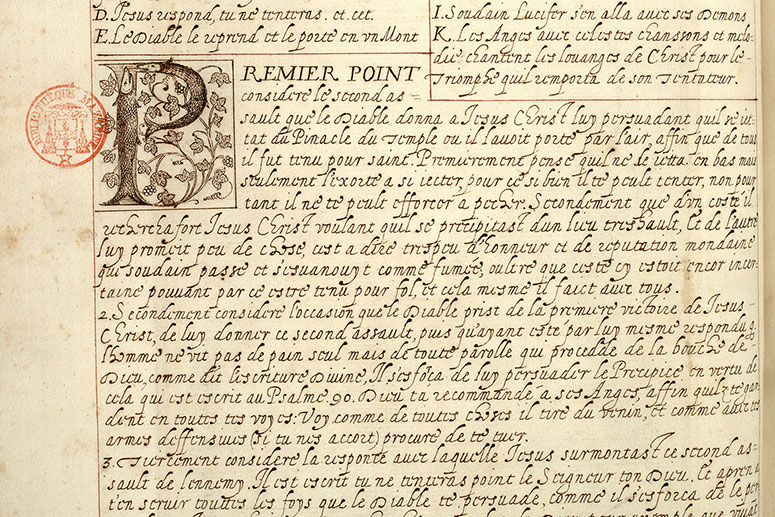 D. Jesus respond, tu ne tenteras. et cet.
E. Le Diable le reprend et le porte en vn Mont
I. Soudain Lucifer s'en alla auec ses Demons
K. Les Anges auec celestes chanssons et melo-
die chantent les louanges de Christ pour le
triomphe quil remporta de son Tentateur.
PREMIER POINT
considere le second as-
sault que le Diable donna a Jesus Christ luy persuadant quil se iet-
tat du Pinacle du Temple ou il l'auoit porte par l'air, affin que de tous
il fut tenu pour saint. Premierement pense quil ne le ietta en bas mais
seulement l'exorte a si iecter, pour ce si bien il te peult tenter, non pour
tant il ne te peult efforcer a pecher. Secondement que d'vn coste il
rechercha fort Jesus Christ voulant quil se precipitast d'un lieu treshault, Et de l'autre
luy promeit peu de chose, c'est a dire trespeu d'honneur et de reputation mondaine
qui soudain passe et s'esuanouyt comme fumee, oultre que ceste cy estoit encor incer-
taine pouuant par ce estre tenu pour fol, et cela mesme il faict auec tous.
2. Secondement considere l'occasion que le Diable prist de la premiere victoire de Jesus
Christ, de luy donner ce second assault, puis qu'ayant este par luy mesme respondu q
l'homme ne vit pas de pain seul mais de toute parolle qui procedde de la bouche de
Dieu, comme dit l'escriture Diuine, Il s'esforca de luy persuader le Precipice en vertu de
cela qui est escrit au Psalme. 90. Dieu ta recommande a ses Anges, affin quilz te gar-
dent en toutes tes voyes: Voy comme de toutes choses il tire du venin, et comme auec tes
armes deffensiues (si tu nes accort) procure de te tuer.
3. Tiercement considere la responce auec laquelle Jesus surmontast ce second as-
sault de l'ennemy. Il est escrit tu ne tenteras point le Seigneur ton Dieu. Et aprens a
t'en seruir touttes les foys que le Diable te persuade, comme il s'esforca de le
BIBLIOTHEQUE MAZARINE